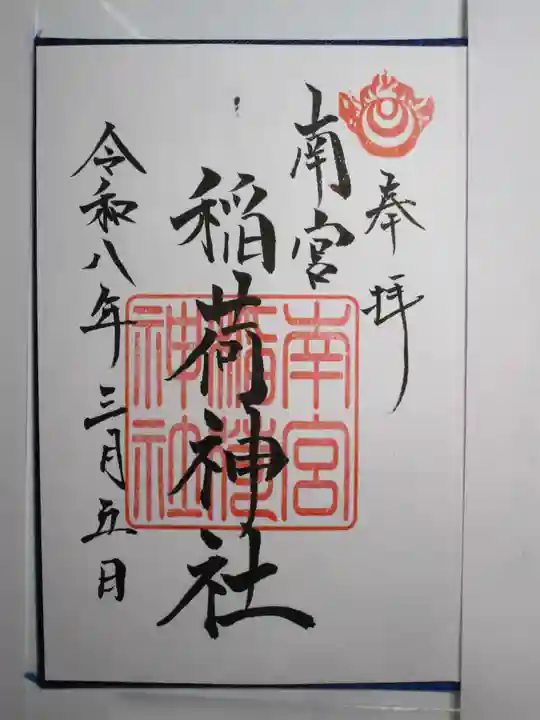 奉拝
南宮
稲荷神社
南宮
稲荷
神社
令和八年三月五日